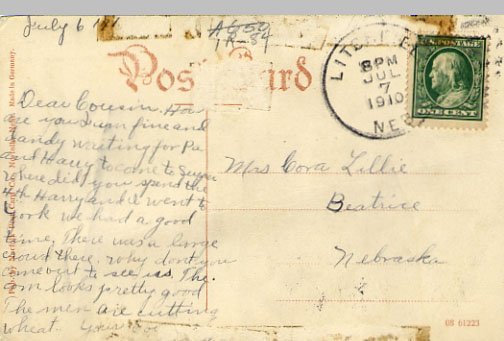 July 6
A 850
Post Card
LIBERTY
8 PM
JUL
7
1910
NEBR
U.S. POSTAGE
ONE CENT
Dear Cousin. How
are you I am fine and
dandy waiting for Pa
and Harry to come to supper
where did you spend the
4th Harry and I went to
York we had a good
time, There was a large
crowd there, why dont you
come over to see us. The
corn looks pretty good
The men are cutting
wheat. Your Co
Mrs Cora Lillie
Beatrice
Nebraska
Made in Germany.
08 61223